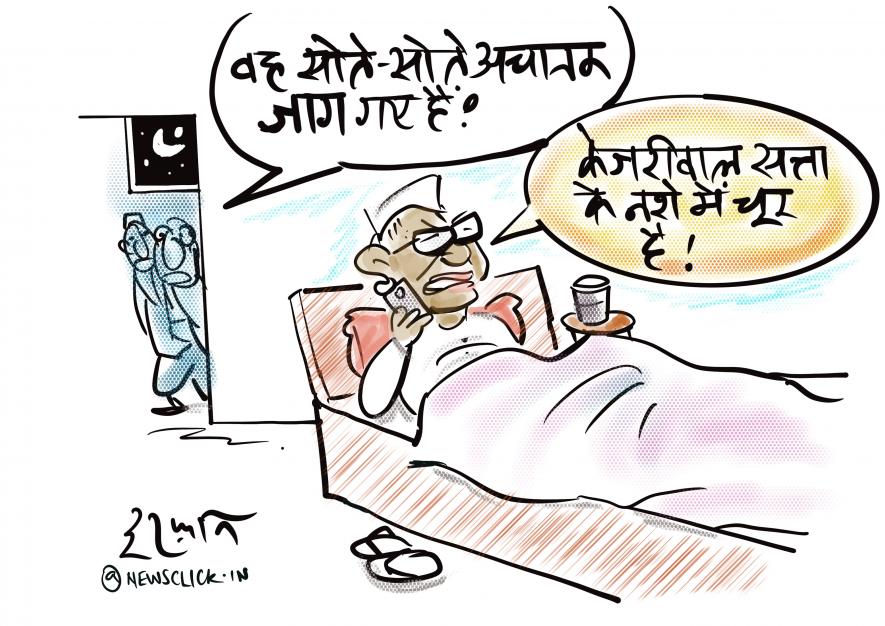 वह सोते-सोते अचानक
जाग गए हैं!
केजरीवाल सत्ता
के नशे में चूर
है!
इरफ़ान
@NEWSCLICK.IN